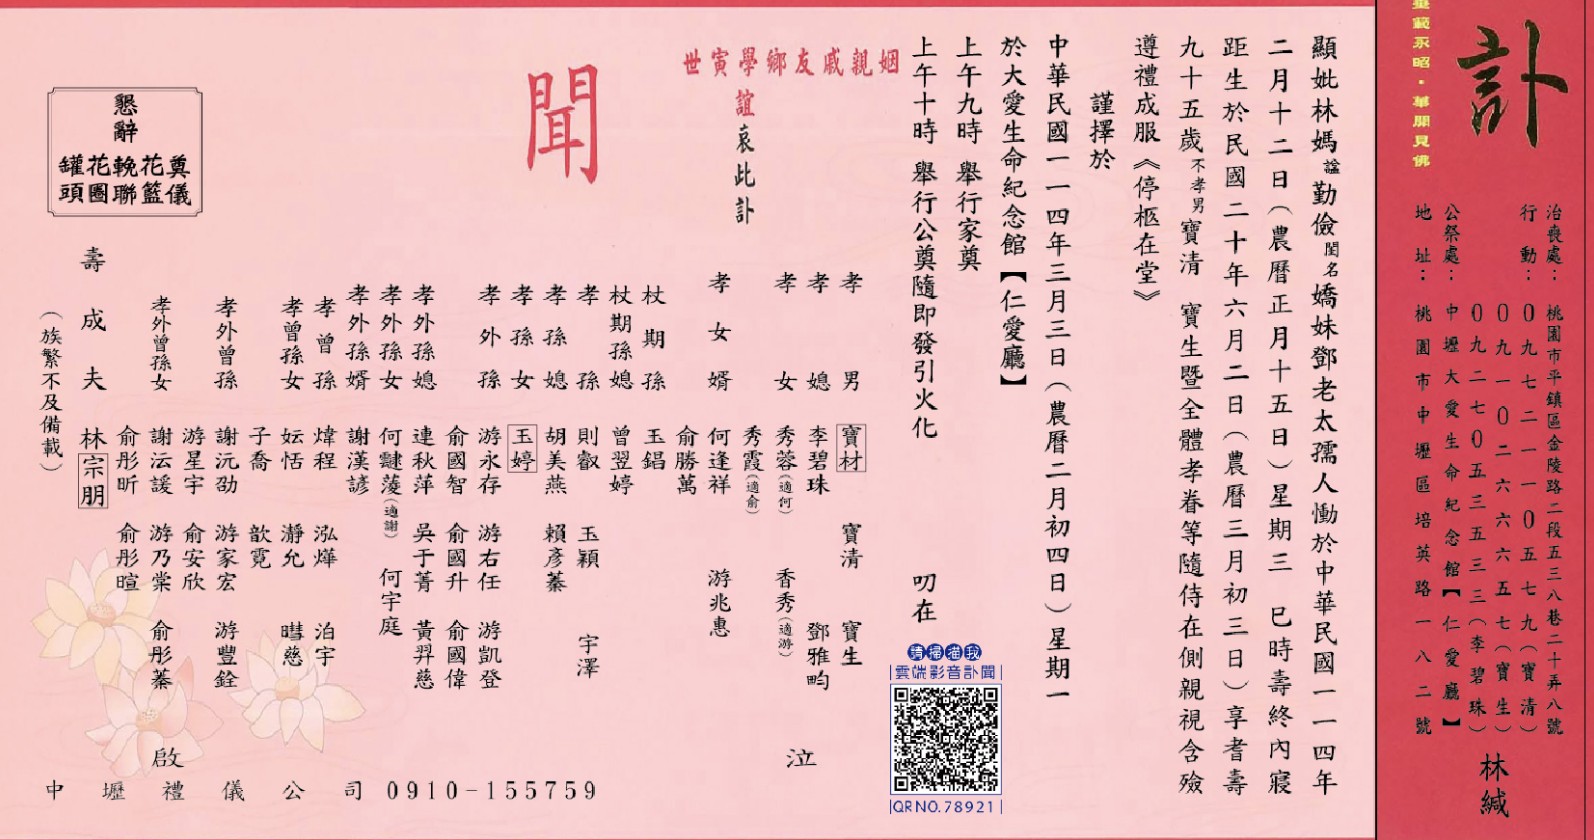 訃
範永昭・華開見佛
治喪處：桃園市平鎮區金陵路二段五三八巷二十弄八號
行動：0九七二一一0五七九（寶清）
0九一0二六六六五七（寶生）
0九二七0五三五三三（李碧珠）
公祭處：中壢大愛生命紀念館【仁愛廳】
地址：桃園市中壢區培英路一八二號
林緘
顯妣林媽諡勤儉閨名嬌妹鄧老太孺人慟於中華民國一一四年
二月十二日（農曆正月十五日）星期三 巳時壽終內寢
距生於民國二十年六月二日（農曆三月初三日）享耆壽
九十五歲不孝男寶清 寶生暨全體孝眷等隨侍在側親視含殮
遵禮成服《停柩在堂》
謹擇於
中華民國一一四年三月三日（農曆二月初四日）星期一
於大愛生命紀念館【仁愛廳】
上午九時 舉行家奠
上午十時 舉行公奠隨即發引火化
叨在
姻親戚友鄉學寅世
誼哀此訃
聞
孝男 寶材 寶清 寶生
孝媳 李碧珠 鄧雅畇
孝女 秀蓉（適何） 香秀（適游）
秀霞（適俞）
孝女婿 何逢祥 游兆惠
俞勝萬
杖期孫 玉錩
杖期孫媳 曾翌婷
孝孫 則叡 玉穎 宇澤
孝孫媳 胡美燕 賴彥蓁
孝孫女 玉婷
孝外孫 游永存 游右任 游凱登
俞國智 俞國升 俞國偉
孝外孫媳 連秋萍 吳于菁 黃羿慈
孝外孫女 何靆蓤（適謝） 何宇庭
孝外孫婿 謝漢諺
孝曾孫 煒程 泓燁 泊宇
孝曾孫女 妘恬 瀞允 暳慈
子喬 歆霓
孝外曾孫 謝沅劭 游家宏 游豐銓
游星宇 俞安欣
孝外曾孫女 謝沄諼 游乃棠 俞彤蓁
俞彤昕 俞彤暄
壽成夫 林宗朋
（族繁不及備載）
泣
啟
懇辭
奠儀
花籃
輓聯
花圈
罐頭
請掃描我
雲端影音訃聞
QR NO. 78921
中壢禮儀公司 0910-155759